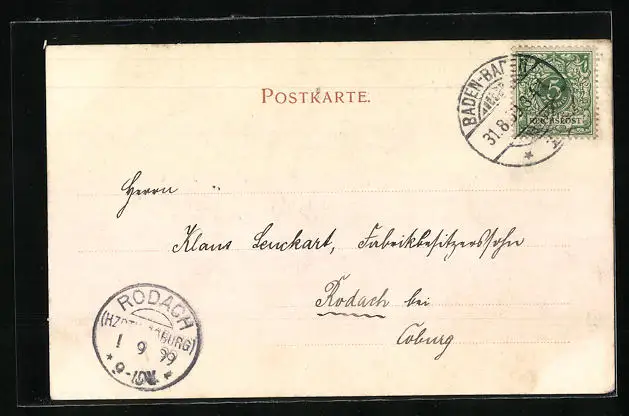 POSTKARTE.
BADEN-BADEN
31.8.
5
REICHSPOST
Herrn
Klaus Lenckart, Fabrikbesitzerssohn
Rodach bei
Coburg
RODACH
(HZGTH. COBURG)
1 9 99
* 6-7 *